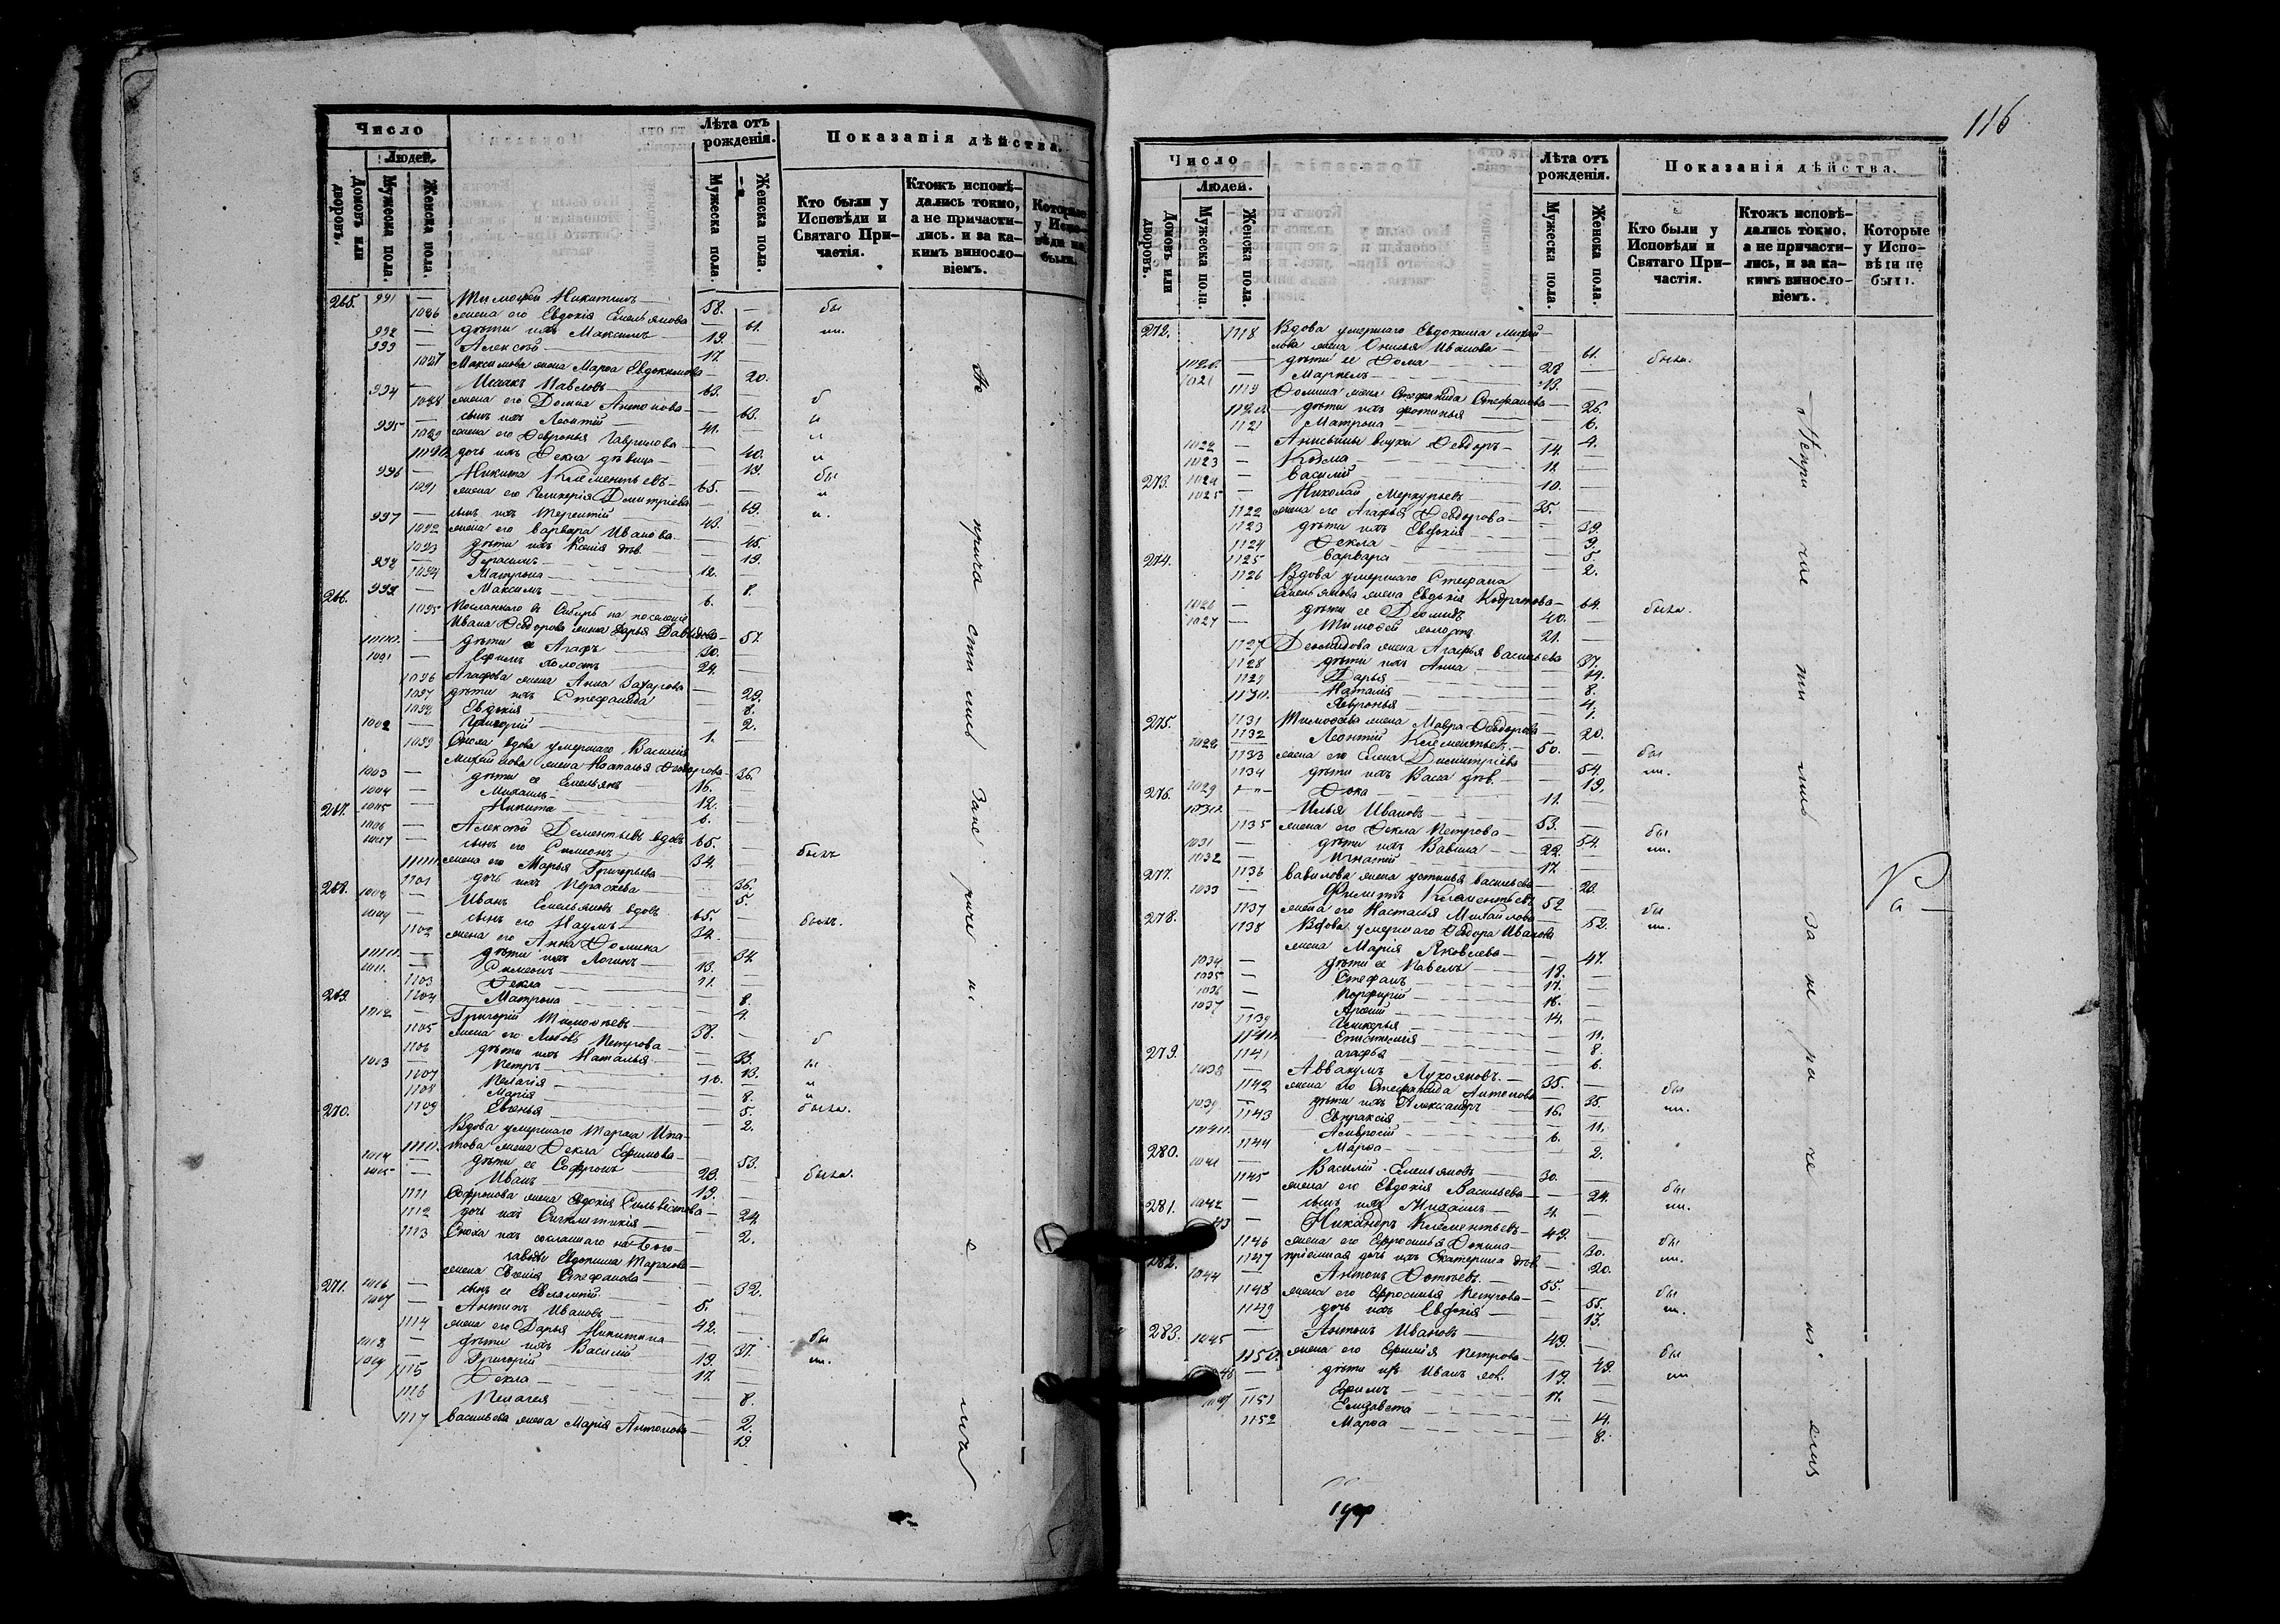 Число
Людей.
Домовъ или дворовъ.
Мужеска пола.
Женска пола.
Лѣта отъ рожденія.
Мужеска пола.
Женска пола.
Показанія дѣйства.
Кто были у Исповѣди и Святаго Причастія.
Ктожъ исповѣдались токмо, а не причастились. и за какимъ винословіемъ.
Которые у Исповѣди не были.
265. 991 — Тимофей Никитинъ — 58. —
1086 жена его Евдокія Емельянова — 61.
992 — дѣти ихъ Максимъ — 19.
993 — Алексѣй — 17.
1087 Максимова жена Марѳа Евдокимова — 20.
994 — Исаакъ Павловъ — 63.
1088 жена его Домна Антонова — 63.
995 — сынъ ихъ Леонтій — 41.
1089 жена его Ѳевронья Гаврилова — 40.
1090 дочь ихъ Ѳекла дѣвица — 19.
996 — Никита Клементьевъ — 65.
1091 жена его Гликерія Дмитріева — 69.
997 — сынъ ихъ Терентій — 43.
1092 жена его Варвара Иванова — 45.
1093 дѣти ихъ Ксенія дѣв. — 19.
998 — Герасимъ — 12.
1094 Матрона — 8.
999 — Максимъ — 6.
266. 1095 Посланнаго въ Сибирь на поселеніе
Ивана Ѳедорова жена Дарья Давыдова — 57.
1000. — дѣти ея Агафъ — 30.
1001 — Ефимъ холостъ — 24.
1096 Агафова жена Анна Захарова — 29.
1097 дѣти ихъ Стефанида — 8.
1098 Евдокія — 2.
1002 — Григорій — 1.
1099 Сноха вдова умершаго Василія
Михайлова жена Наталья Ѳедорова — 36
1003 — дѣти ее Емельянъ — 16.
1004 — Михаилъ — 12.
1005 — Никита — 6.
267. 1006 — Алексѣй Дементьевъ вдовъ — 65.
1007 — сынъ его Симеонъ — 34.
1100 жена его Марья Григорьева — 36.
1101 дочь ихъ Параскева — 5.
268. 1008 — Иванъ Емельяновъ вдовъ — 65.
1009 — сынъ его Наумъ — 34.
1102 жена его Анна Ѳомина — 34
1010. — дѣти ихъ Логинъ — 13.
1011. — Симеонъ — 11.
1103 Ѳекла — 8.
1104 Матрона — 4.
269. 1012 — Григорій Тимоѳеевъ — 38.
1105 жена его Любовь Петрова — 33.
1106 дѣти ихъ Наталья — 13.
1013 — Петръ — 10.
1107 Пелагія — 8.
1108 Марія — 5.
1109 Евгенья — 2.
270. Вдова умершаго Тараса Ипатова
1110. жена Ѳекла Ефимова — 53.
1014 — дѣти ее Софронъ — 23.
1015 — Иванъ — 19.
1111 Софронова жена Евдокія Сильвестрова — 24.
1112 дочь ихъ Синклитикія — 2.
1113 Сноха ихъ сосланнаго на Бого-
Евдокима Тарасова
жена Евгенія Стефанова — 32.
1016 — сынъ ее Евлампій — 5.
271. 1017 — Антипъ Ивановъ — 42.
1114 жена его Дарья Никитина — 37.
1018 — дѣти ихъ Василій — 19.
1019 — Григорій — 17.
1115 Ѳекла — 8.
1116 Пелагея — 2.
1117 Васильева жена Марія Антонова — 19.
были. были. были. былъ былъ. были. была. была. были.
Не причастились Зане
116
Число
Людей.
Домовъ или дворовъ.
Мужеска пола.
Женска пола.
Лѣта отъ рожденія.
Мужеска пола.
Женска пола.
Показанія дѣйства.
Кто были у Исповѣди и Святаго Причастія.
Ктожъ исповѣдались токмо, а не причастились, и за какимъ винословіемъ.
Которые у Исповѣди не были.
272. 1118 Вдова умершаго Евдокима Михай-
лова жена Онисья Иванова — 61. была.
1020. — дѣти ее Ѳома — 28
1021 — Маркелъ — 13.
1119 Ѳомина жена Стефанида Стефанова — 26.
1120 дѣти ихъ Фотинья — 6.
1121 Матрона — 4.
1022 — Анисьины внуки Ѳедоръ — 14.
1023 — Козма — 11.
1024 — Василій — 10.
273. 1025 — Николай Меркурьевъ — 35.
1122 жена его Агафья Ѳедорова — 39.
1123 дѣти ихъ Евдокія — 9.
1124 Ѳекла — 5.
1125 Варвара — 2.
274. 1126 Вдова умершаго Стефана
Емельянова жена Евдокія Кодратова — 64. была.
1026 — дѣти ее Діомидъ — 40.
1027 — Тимоѳей холостъ — 21.
1127 Деомидова жена Агафья Васильева — 37.
1128 дѣти ихъ Анна — 14.
1129 Дарья — 8.
1130. Наталія — 4.
1131 Ѳевронья — 1.
1132 Тимоѳеева жена Мавра Ѳедорова — 20.
275. 1028 — Леонтій Клементьевъ — 50.
1133 жена его Елена Димитріева — 54.
1134 дѣти ихъ Васса дѣв. — 19.
1029 — Ѳока — 11.
276. 1030. — Илья Ивановъ — 53.
1135 жена его Ѳекла Петрова — 54.
1031 — дѣти ихъ Вавила — 22.
1032 — Игнатій — 17.
1136 Вавилова жена Устинья Васильева — 20.
277. 1033 — Филиппъ Клементьевъ — 52
1137 жена его Настасья Михайлова — 52.
278. 1138 Вдова умершаго Ѳедора Иванова
жена Марія Яковлева — 47.
1034 — дѣти ее Павелъ — 18.
1035 — Стефанъ — 17.
1036 — Порфирій — 16.
1037 — Арсеній — 14.
1139 Гликерья — 11.
1140. Епистимія — 8.
1141 Агафья — 6.
279. 1038 — Аввакумъ Лукояновъ — 35.
1142 жена его Стефанида Антонова — 35.
1039 — дѣти ихъ Александръ — 16.
1143 Евпраксія — 11.
1040. — Амвросій — 6.
1144 Марѳа — 2.
280. 1041 — Василій Емельяновъ — 30.
1145 жена его Евдокія Васильева — 24.
1042 — сынъ ихъ Михаилъ — 4.
281. Никандръ Клементьевъ — 49.
1146 жена его Ефросинья Ѳомина — 50.
1147 пріемная дочь ихъ Екатерина дѣв. — 20.
282. 1044 — Антонъ Ѳотіевъ — 55.
1148 жена его Ефросинья Петрова — 55.
1149 дочь ихъ Евдокія — 13.
283. 1045 — Антонъ Ивановъ — 49.
1150. жена его Ефимія Петрова — 49.
дѣти ихъ Иванъ хол. — 19.
Ефимъ — 17.
1151 Елизавета — 14.
1152 Марѳа — 8.
были. были. были. были. были. были. были. были.
Непричастились За нераченіемъ